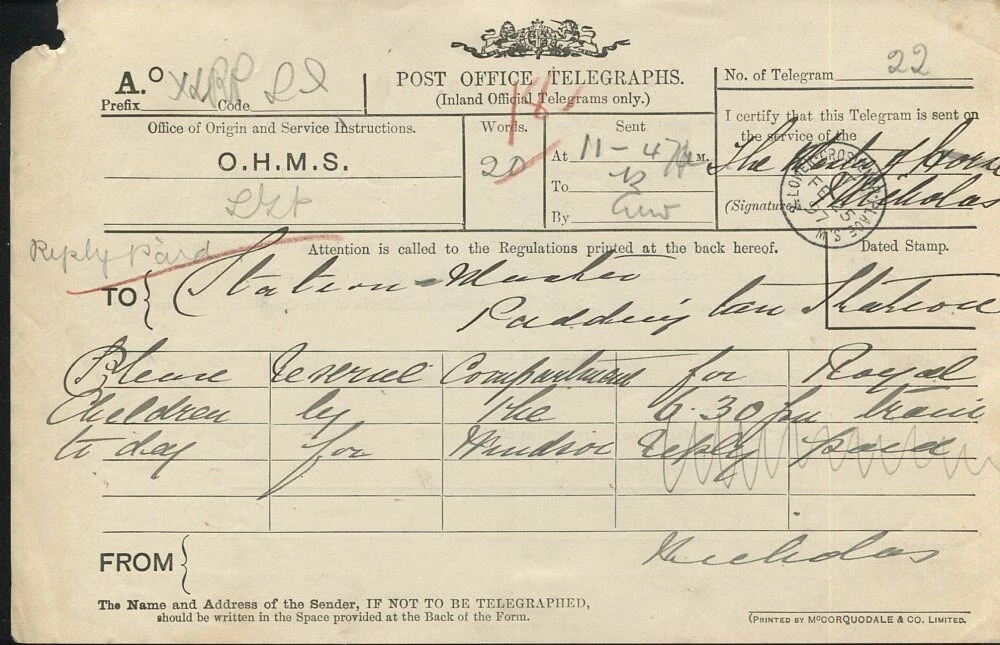 A.º
Prefix Code
POST OFFICE TELEGRAPHS.
(Inland Official Telegrams only.)
No. of Telegram 22
Office of Origin and Service Instructions.
O.H.M.S.
Words.
18
20
Sent
At 11-47 A M.
To
By
I certify that this Telegram is sent on
the service of the
The of
(Signature) Nicholas
LOWER GROSVENOR PLACE
FE 25
97
S.W.
Dated Stamp.
Reply Paid
Attention is called to the Regulations printed at the back hereof.
TO { Station-Master
Paddington Station
Please reserve Compartment for Royal
Children by the 6.30 pm train
to day for Windsor Reply paid
FROM { Nicholas
The Name and Address of the Sender, IF NOT TO BE TELEGRAPHED,
should be written in the Space provided at the Back of the Form.
(PRINTED BY MCCORQUODALE & CO. LIMITED.